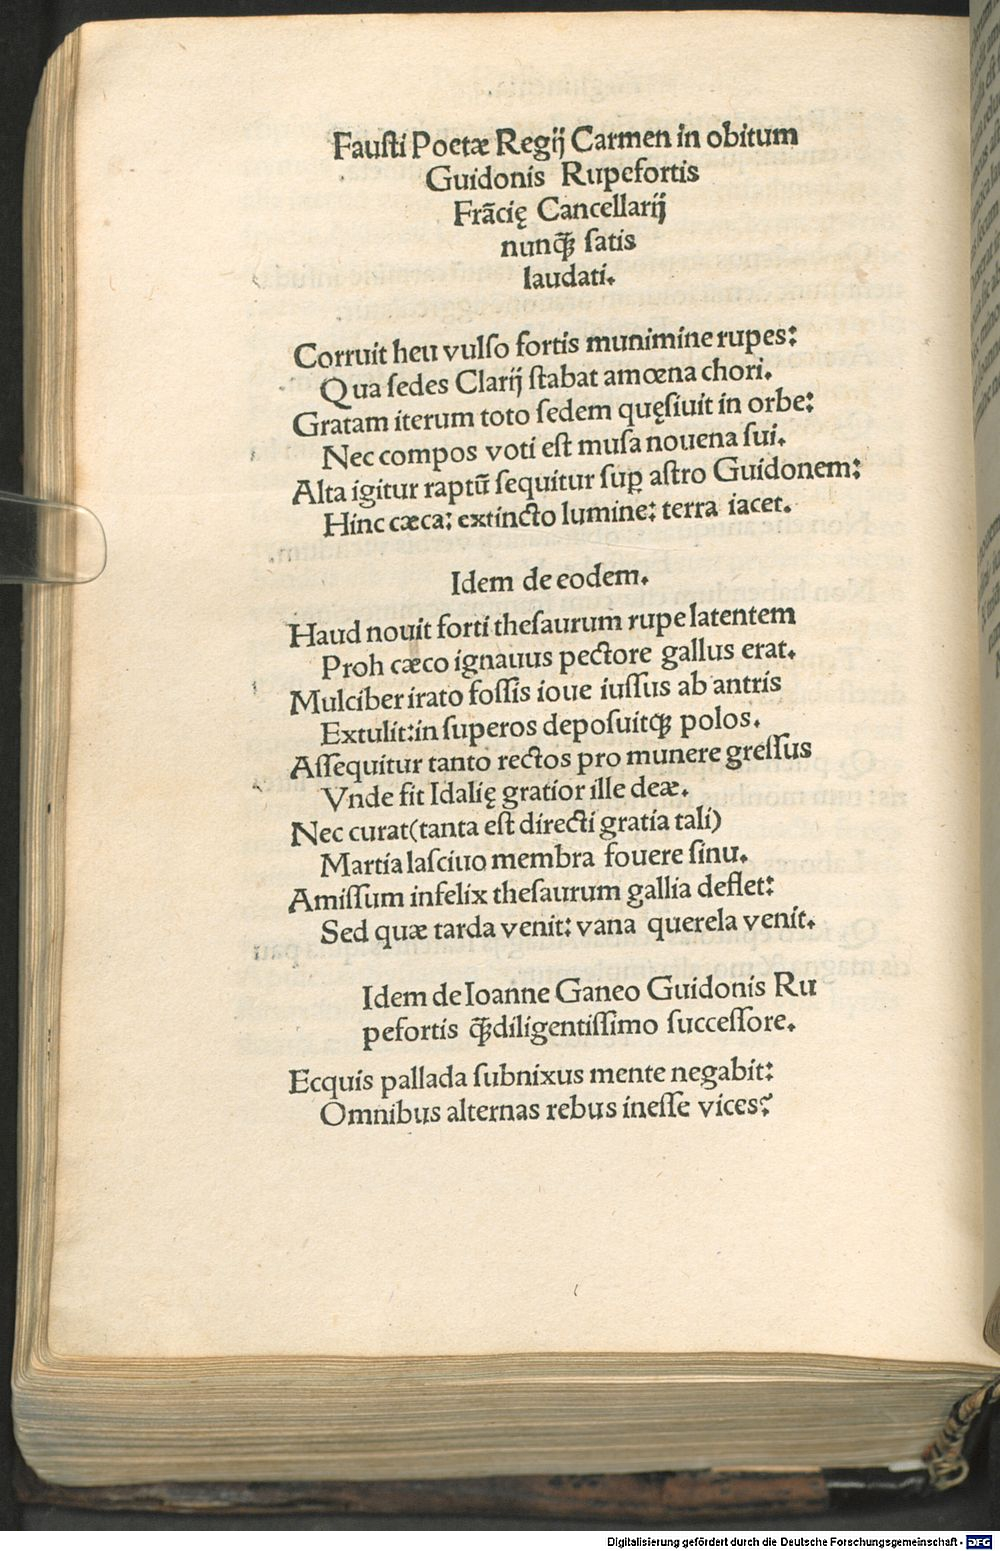 Fauſti Poetæ Regij Carmen in obitum
Guidonis Rupefortis
Frãcię Cancellarij
nunꝗ̃ ſatis
laudati.
Corruit heu vulſo fortis munimine rupes:
Qua ſedes Clarij ſtabat amœna chori.
Gratam iterum toto ſedem quęſiuit in orbe:
Nec compos voti eſt muſa nouena ſui.
Alta igitur raptũ ſequitur ſuꝑ aſtro Guidonem:
Hinc cæca: extincto lumine: terra iacet.
Idem de eodem.
Haud nouit forti theſaurum rupe latentem
Proh cæco ignauus pectore gallus erat.
Mulciber irato foſſis ioue iuſſus ab antris
Extulit: in ſuperos depoſuitqꝫ polos.
Aſſequitur tanto rectos pro munere greſſus
Vnde fit Idalię gratior ille deæ.
Nec curat (tanta eſt directi gratia tali)
Martia laſciuo membra fouere ſinu.
Amiſſum infelix theſaurum gallia deflet:
Sed quæ tarda venit: vana querela venit.
Idem de Ioanne Ganeo Guidonis Ru
pefortis ꝗ̃diligentiſſimo ſucceſſore.
Ecquis pallada ſubnixus mente negabit:
Omnibus alternas rebus ineſſe vices?
Digitalisierung gefördert durch die Deutsche Forschungsgemeinschaft - DFG